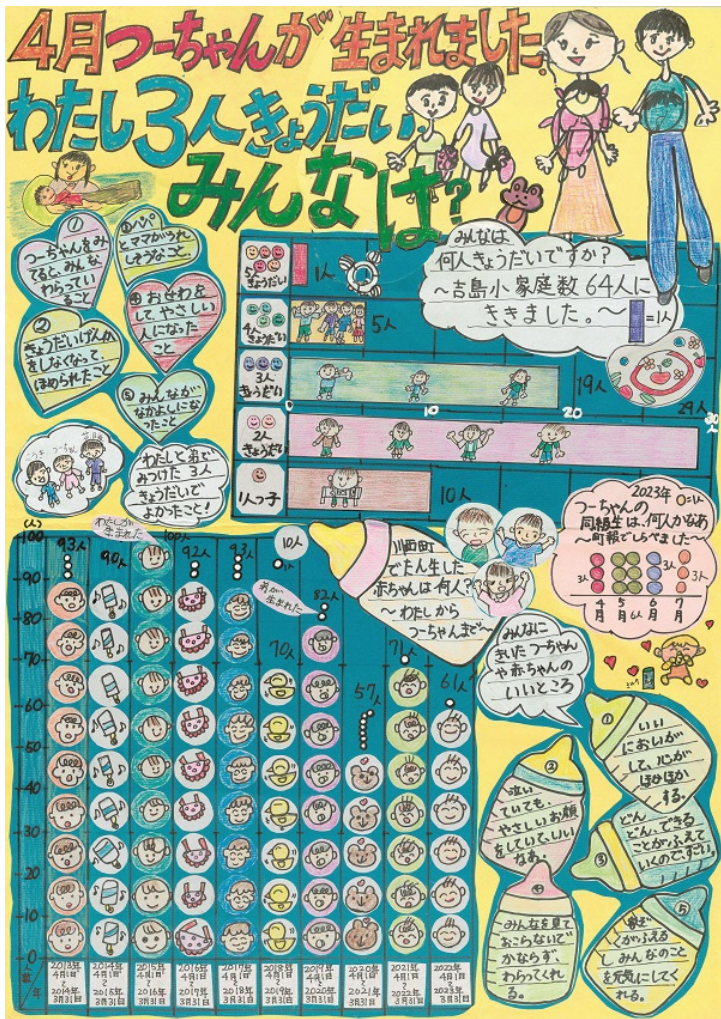 4月つーちゃんが生まれました。
わたし3人きょうだい
みんなは?
①
つーちゃんをみ
てると、みんな
わらってい
ること
③パパ
とママがうれ
しそうなこと。
②
きょうだいげんか
をしなくなって
ほめられたこと
④おせわを
して、やさしい
人になった
こと
⑤みんなが
なかよしにな
ったこと
わたしと弟で
みつけた3人
きょうだいで
よかったこと!
みんなは
何人きょうだいですか?
~吉島小家庭数64人に
ききました。~
=1人
5人
きょうだい
1人
4人
きょうだい
5人
3人
きょうだい
19人
0
10
20
30人
2人
きょうだい
29人
1人っ子
10人
2023年 ○=1人
つーちゃんの
同級生は、何人かなあ
~町報でしらべました~
3人
3人
3人
4月
5月
6人
6月
7月
川西町
でたん生した
赤ちゃんは何人?
~わたしから
つーちゃんまで~
(人)
100
90
80
70
60
50
40
30
20
10
0
93人
90人
わたしが
生まれた
100人
92人
93人
70人
弟が
生まれた
82人
57人
71人
61人
10人
1人
人数
年
2013年
4月1日
~
2014年
3月31日
2014年
4月1日
~
2015年
3月31日
2015年
4月1日
~
2016年
3月31日
2016年
4月1日
~
2017年
3月31日
2017年
4月1日
~
2018年
3月31日
2018年
4月1日
~
2019年
3月31日
2019年
4月1日
~
2020年
3月31日
2020年
4月1日
~
2021年
3月31日
2021年
4月1日
~
2022年
3月31日
2022年
4月1日
~
2023年
3月31日
みんなに
きいたつーちゃん
や赤ちゃんの
いいところ
①
いい
においが
して、心が
ほかほか
する。
②
泣い
ていても、
やさしいお顔
をしていて、いい
なあ。
③
どん
どん、できる
ことがふえて
いくので、すごい。
④
みんなを見て
おこらないで
かならず、
わらってくれ
る。
⑤
がふえる
し みんなのこと
を元気にしてく
れる。